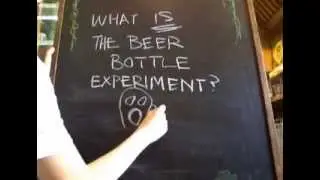 WHAT IS
THE BEER
BOTTLE
EXPERIMENT?